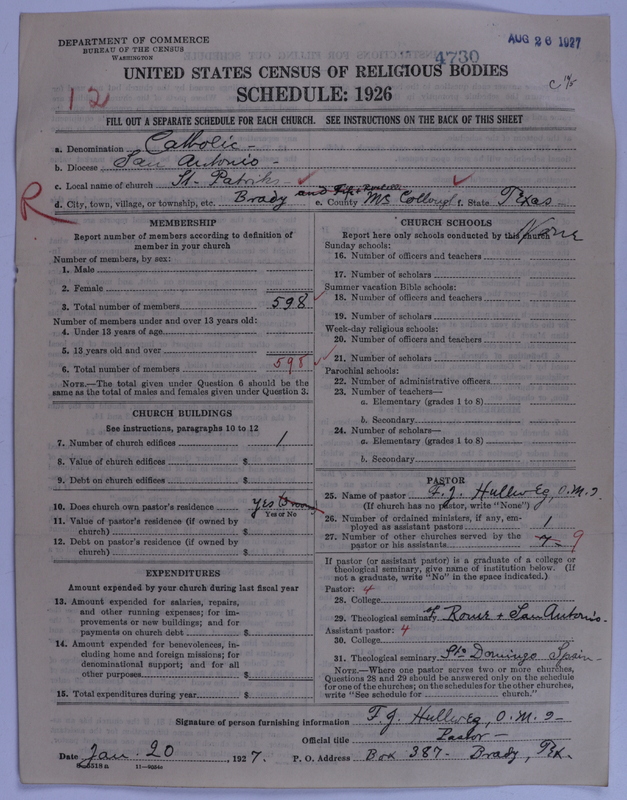 DEPARTMENT OF COMMERCE
BUREAU OF THE CENSUS
WASHINGTON
AUG 26 1927
4730
UNITED STATES CENSUS OF RELIGIOUS BODIES
SCHEDULE: 1926
12
FILL OUT A SEPARATE SCHEDULE FOR EACH CHURCH. SEE INSTRUCTIONS ON THE BACK OF THIS SHEET
a. Denomination Catholic -
b. Diocese San Antonio -
c. Local name of church St. Patriks
R
d. City, town, village, or township, etc. Brady e. County Mc Collough f. State Texas -
MEMBERSHIP
Report number of members according to definition of
member in your church
Number of members, by sex:
1. Male
2. Female
3. Total number of members 598
Number of members under and over 13 years old:
4. Under 13 years of age
5. 13 years old and over
6. Total number of members 598
NOTE.—The total given under Question 6 should be
the same as the total of males and females given under Question 3.
CHURCH BUILDINGS
See instructions, paragraphs 10 to 12
7. Number of church edifices 1
8. Value of church edifices $
9. Debt on church edifices $
10. Does church own pastor's residence yes
Yes or No
11. Value of pastor's residence (if owned by
church) $
12. Debt on pastor's residence (if owned by
church) $
EXPENDITURES
Amount expended by your church during last fiscal year
13. Amount expended for salaries, repairs,
and other running expenses; for im-
provements or new buildings; and for
payments on church debt $
14. Amount expended for benevolences, in-
cluding home and foreign missions; for
denominational support; and for all
other purposes $
15. Total expenditures during year $
CHURCH SCHOOLS
Report here only schools conducted by this church None
Sunday schools:
16. Number of officers and teachers
17. Number of scholars
Summer vacation Bible schools:
18. Number of officers and teachers
19. Number of scholars
Week-day religious schools:
20. Number of officers and teachers
21. Number of scholars
Parochial schools:
22. Number of administrative officers
23. Number of teachers—
a. Elementary (grades 1 to 8)
b. Secondary
24. Number of scholars—
a. Elementary (grades 1 to 8)
b. Secondary
PASTOR
25. Name of pastor F. J. Hullweg, O.M.I.
(If church has no pastor, write "None")
26. Number of ordained ministers, if any, em-
ployed as assistant pastors 1
27. Number of other churches served by the
pastor or his assistants 7 9
If pastor (or assistant pastor) is a graduate of a college or
theological seminary, give name of institution below. (If
not a graduate, write "No" in the space indicated.)
Pastor: 4
28. College
29. Theological seminary of Rome + San Antonio -
Assistant pastor: 4
30. College
31. Theological seminary Sto Domingo Spain -
NOTE.—Where one pastor serves two or more churches,
Questions 28 and 29 should be answered only on the schedule
for one of the churches; on the schedules for the other churches,
write "See schedule for church."
Signature of person furnishing information F J Hullweg, O.M.I -
Official title Pastor -
Date Jan. 20, 1927. P. O. Address Box 387 - Brady, Tex.
11—9554